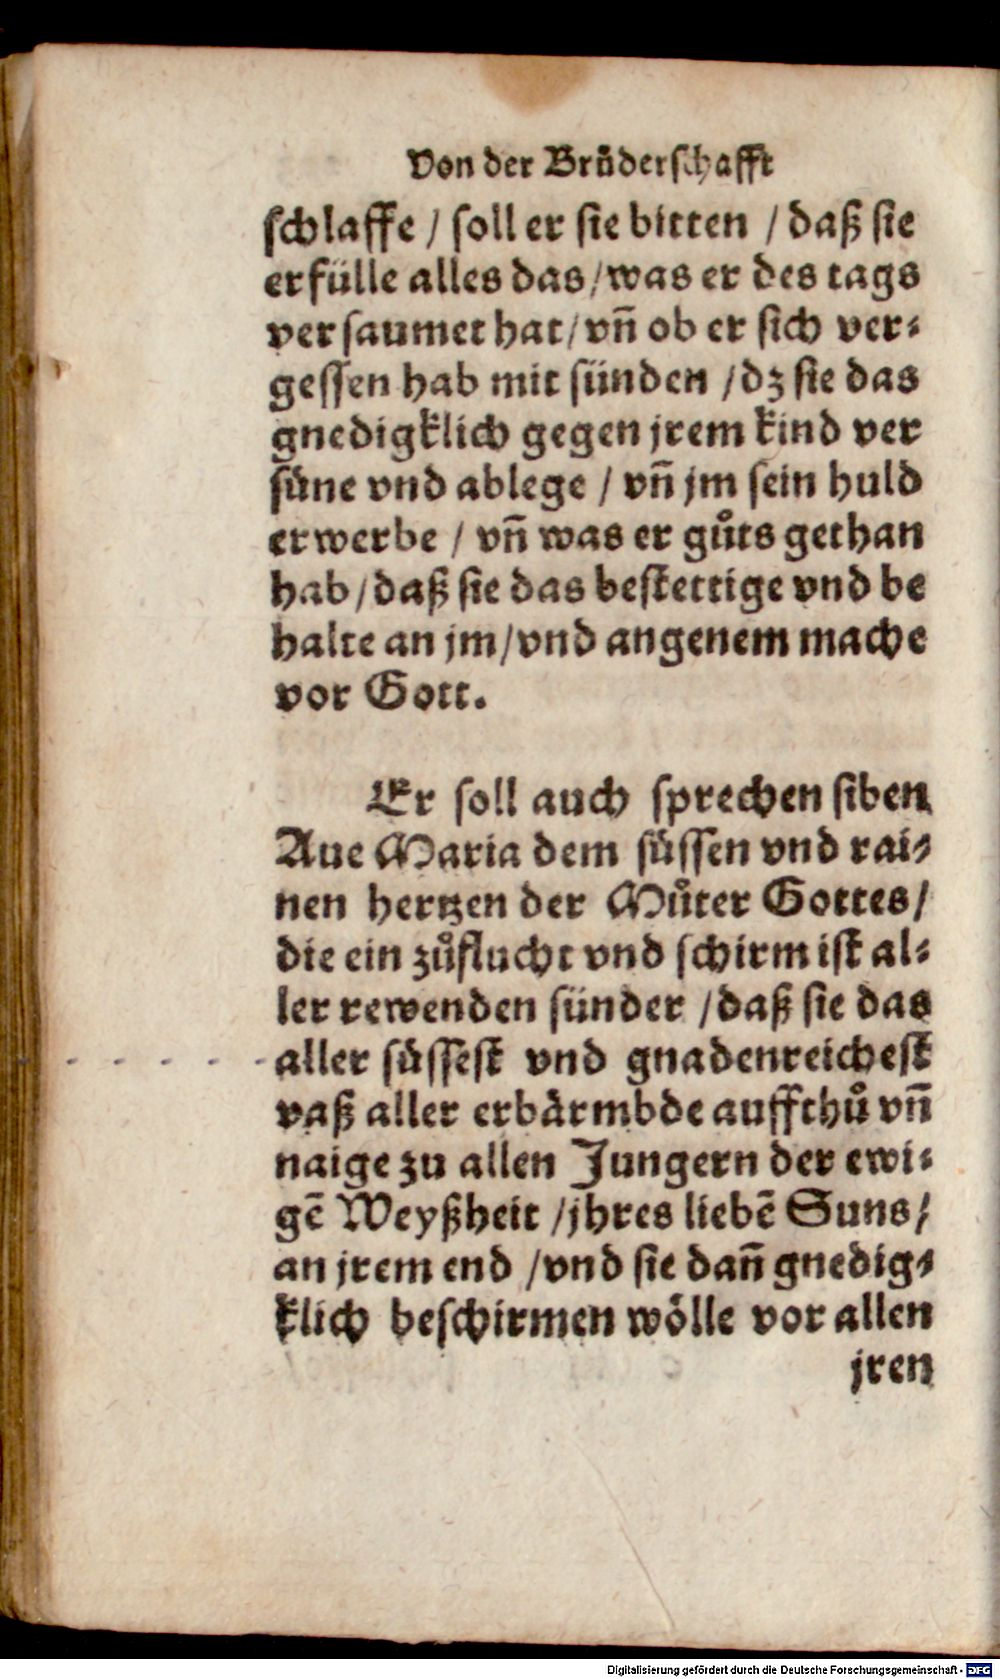 Von der Brůderschafft
schlaffe / soll er sie bitten / daß sie
erfülle alles das / was er des tags
versaumet hat / vñ ob er sich ver⸗
gessen hab mit sünden / dz sie das
gnedigklich gegen jrem kind ver
süne vnd ablege / vñ jm sein huld
erwerbe / vñ was er gůts gethan
hab / daß sie das bestettige vnd be
halte an jm / vnd angenem mache
vor Gott.
Er soll auch sprechen siben
Aue Maria dem süssen vnd rai⸗
nen hertzen der Můter Gottes /
die ein zůflucht vnd schirm ist al⸗
ler rewenden sünder / daß sie das
aller süssest vnd gnadenreichest
vaß aller erbärmbde auffthů vñ
naige zu allen Jungern der ewi⸗
gē Weyßheit / jhres liebē Suns /
an jrem end / vnd sie dañ gnedig⸗
klich beschirmen wölle vor allen
jren
Digitalisierung gefördert durch die Deutsche Forschungsgemeinschaft - DFG